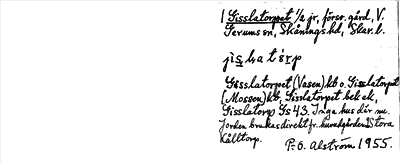 Gisslatorpet 1/2 jr, försv. gård, V.
Gerums sn, Skånings hd, Skar. l.
Gisslatorpet (Vasen) kb o. Gisslatorpet
(Mossen) kb, Gisslatorpet bek ek,
Gisslatorp Gs 43. Inga hus där nu.
Jorden brukas direkt fr. huvudgården Stora
Källtorp.
P. O. Alström 1955.